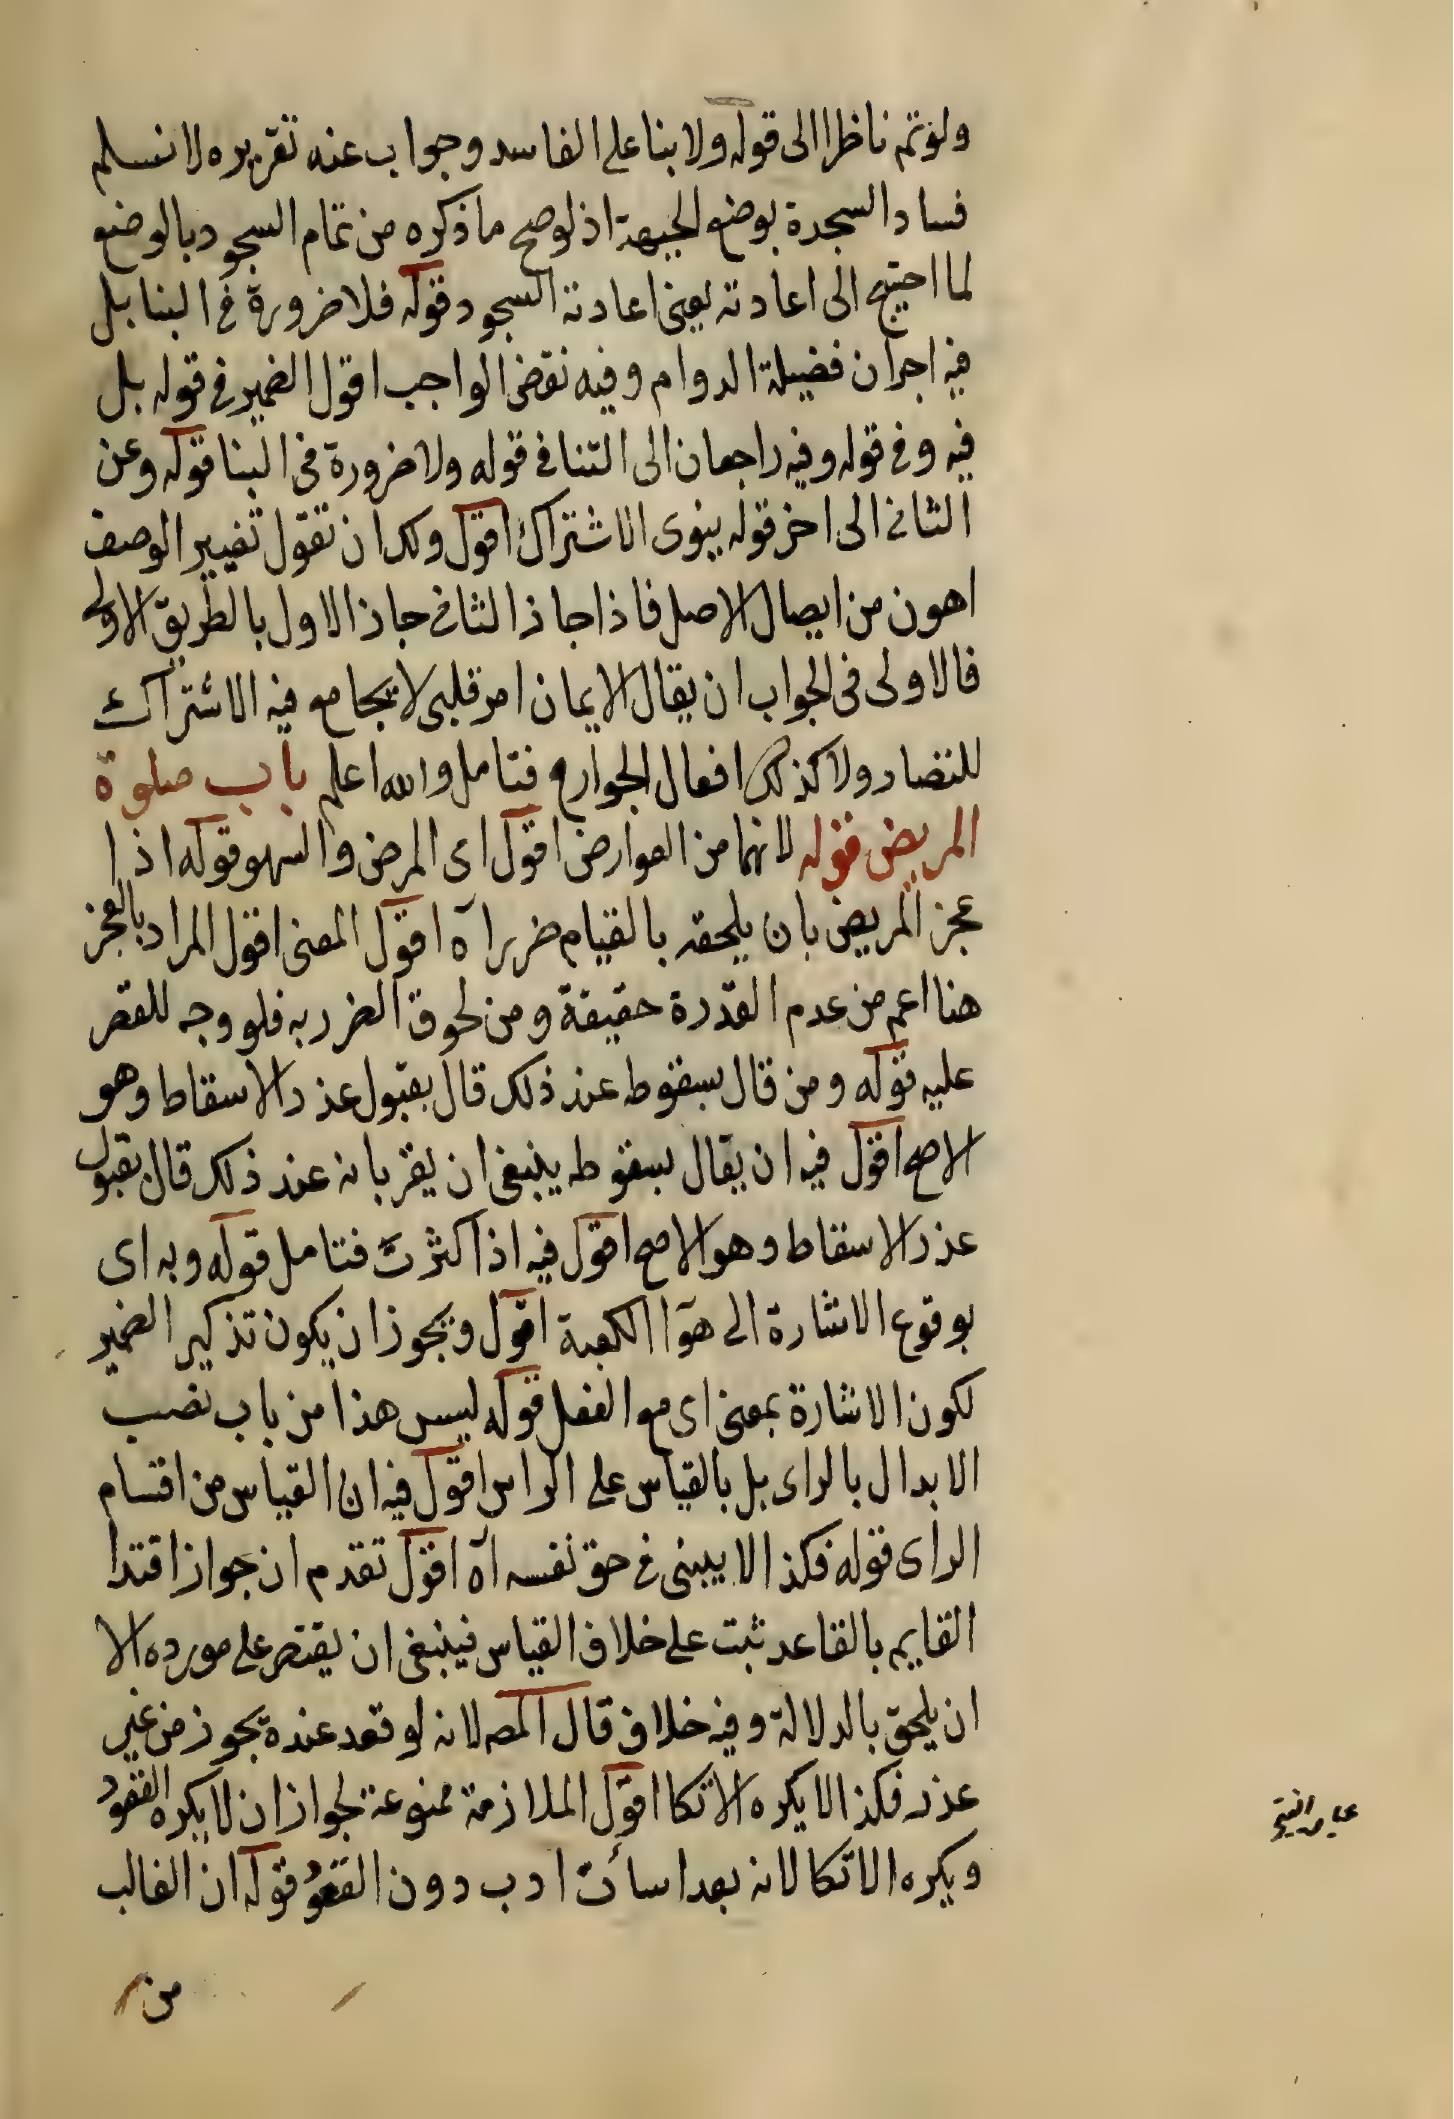 ولو تم ناظرا الى قوله ولا بنا على الفاسد وجواب عنه تقريره لا نسلم
فساد السجدة بوضع الجبهة اذ لو صح ما ذكره من تمام السجود بالوضع
لما احتيج الى اعادته يعنى اعادته السجود قوله فلا ضرورة فى البنا بل
فيه احران فضيلة الدوام وفيه نقض الواجب اقول الضمير فى قوله بل
فيه وفى قوله وفيه راجعان الى البنا فى قوله ولا ضرورة فى البنا قوله وعن
الثانى الى اخر قوله ينوى الاشتراك اقول ولك ان تقول تغيير الوصف
اهون من ايصال الاصل فاذا جاز الثانى جاز الاول بالطريق الاولى
فالاولى فى الجواب ان يقال الايمان امر قلبى لا يجامع فيه الاشتراك
للتضاد ولا كذلك افعال الجوارح فتامل والله اعلم باب صلوة
المريض قوله لانهما من العوارض اقول اى المرض والسهو قوله اذا
عجز المريض بان يلحقه بالقيام ضررا آه اقول المعنى اقول المراد بالعجز
هنا اعم من عدم القدرة حقيقة ومن لحوق الضرر به فلو وجه للقصر
عليه قوله ومن قال بسقوط عند ذلك قال بقبول عذر الاسقاط وهو
الاصح اقول فيه ان يقال بسقوطه ينبغى ان يقر بانه عند ذلك قال بقبول
عذر الاسقاط وهو الاصح اقول فيه اذا كثرت فتامل قوله وبه اى
بوقوع الاشارة الى هوآ الكعبة اقول ويجوز ان يكون تذكير الضمير
لكون الاشارة بمعنى اى مع الفعل قوله ليس هذا من باب نصب
الابدال بالراى بل بالقياس على الراس اقول فيه ان القياس من اقسام
الراى قوله فكذا لا يبنى فى حق نفسه آه اقول تقدم ان جواز اقتدا
القايم بالقاعد ثبت على خلاف القياس فينبغى ان يقتصر على مورده الا
ان يلحق بالدلالة وفيه خلاف قال المص لانه لو قعد عنده يجوز من غير
عذر فكذا لا يكره الاتكا اقول الملازمة ممنوعة لجواز ان لا يكره القعود
ويكره الاتكا لانه يعد اسأت ادب دون القعود قوله ان الغالب
من